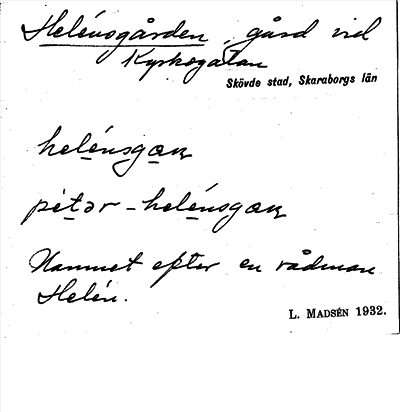 Helénsgården, gård vid
Kyrkogatan
Skövde stad, Skaraborgs län
helénsgaɳ
petər-helénsgaɳ
Namnet efter en rådman
Helén.
L. MADSÉN 1932.